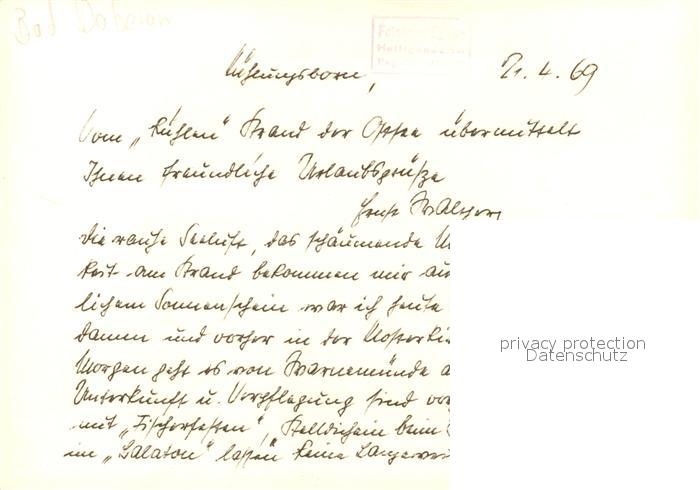 Bad Doberan
Kühlungsborn, 21.4.69
Vom „kühlen" Strand der Ostsee übermittelt
Ihnen freundliche Urlaubsgrüße
Ernst Walther
Die rauhe Seeluft, das schäumende
keit am Strand bekommen mir
lichem Sonnenschein war ich heute
damm und vorher in der
Morgen geht es von Warnemünde
Unterkunft u. Verpflegung sind
mit „Fischerfesten", Stelldichein beim
im „Balaton" lassen keine
privacy protection
Datenschutz